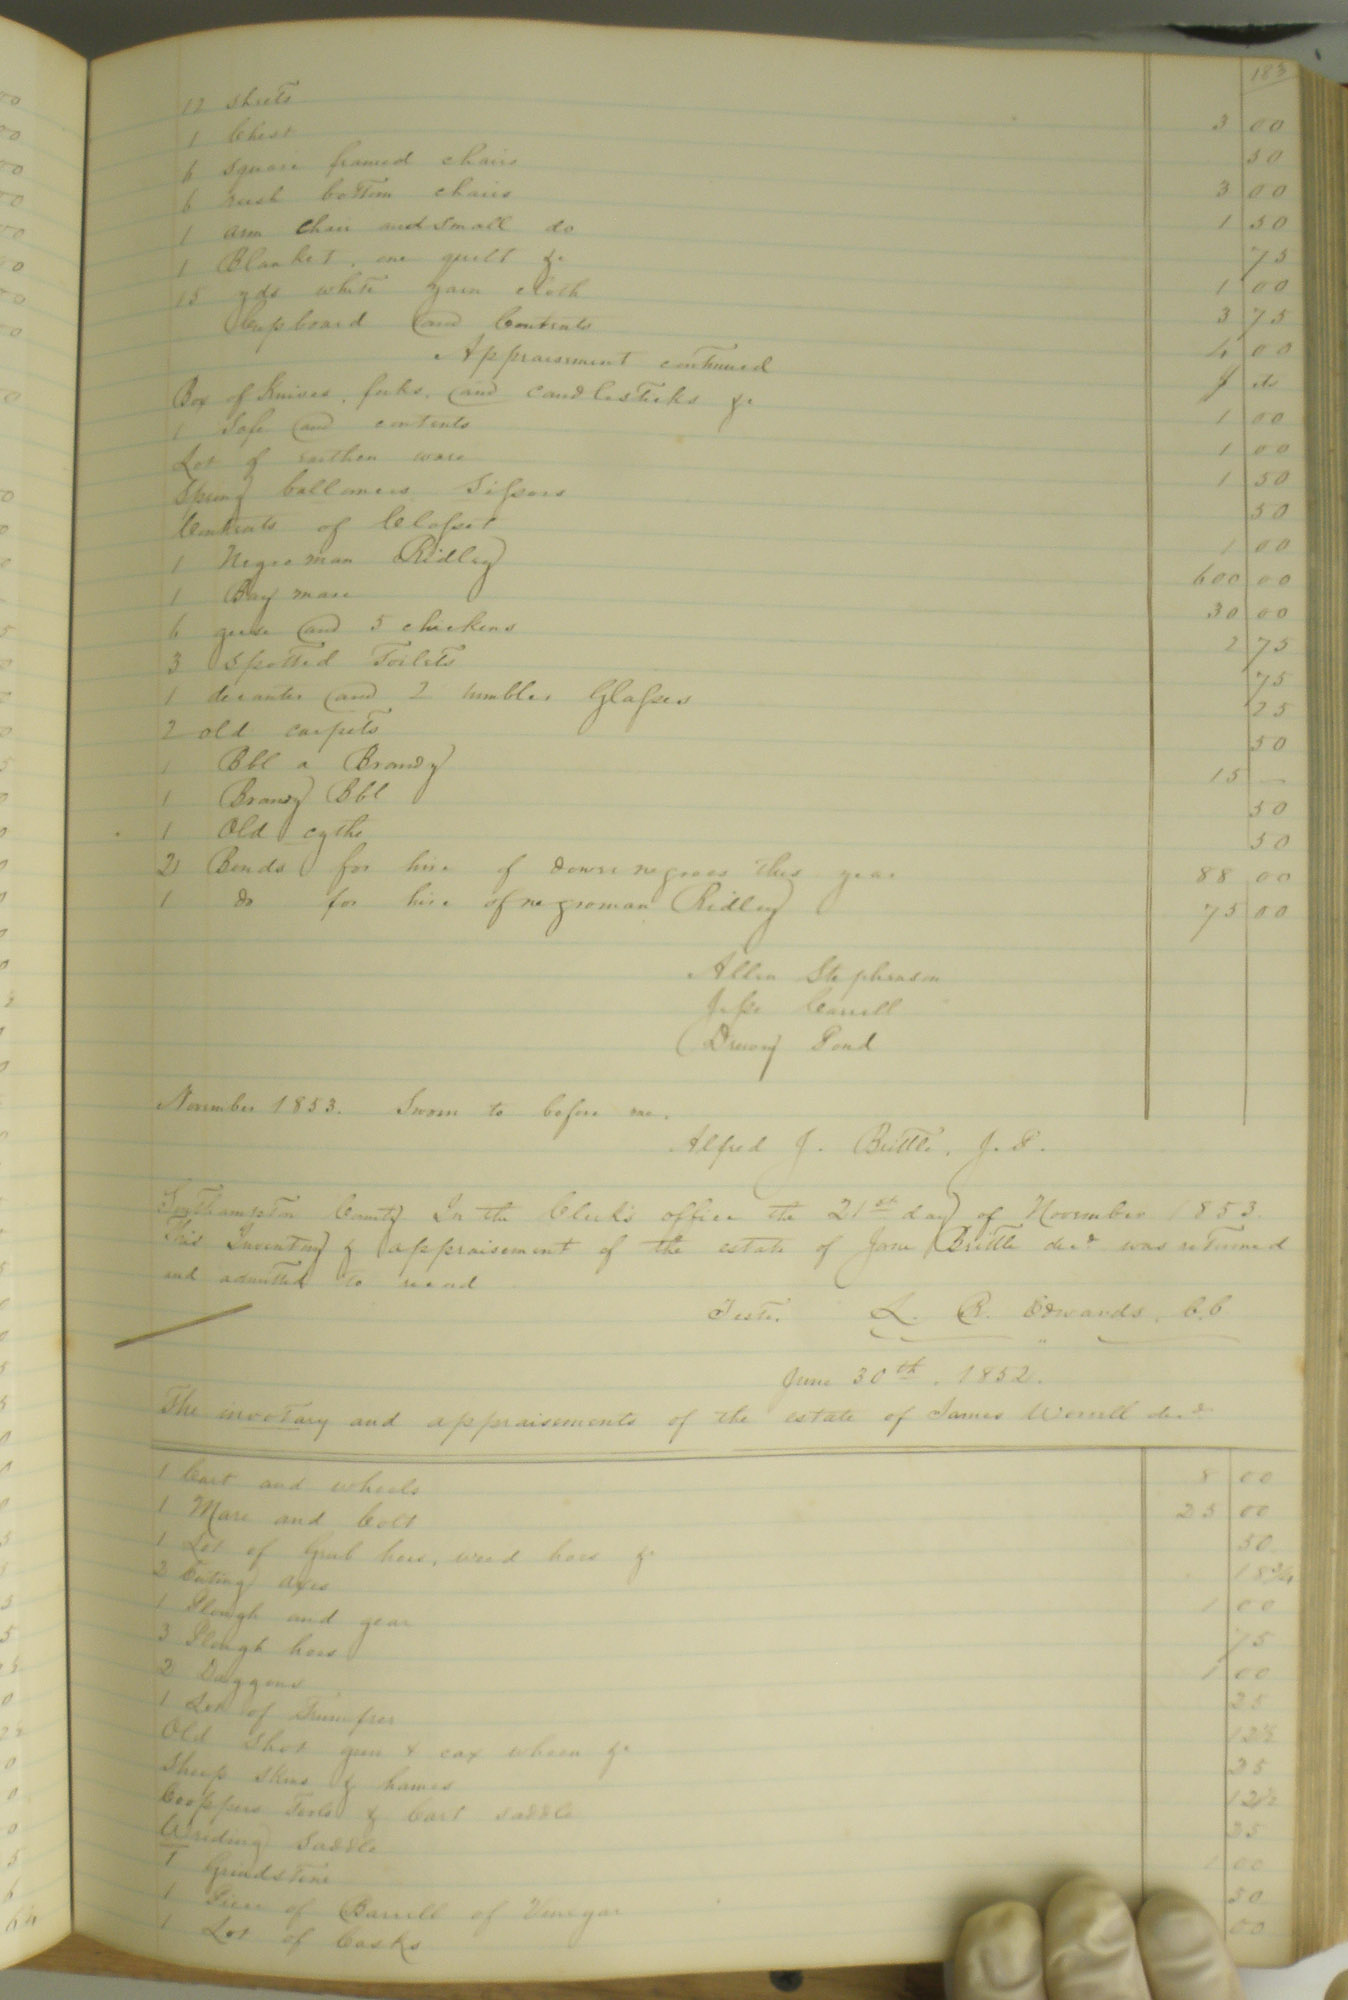 183
12 Sheets 3 00
1 Chest 50
6 square framed chairs 3 00
6 rush bottom chairs 1 50
1 arm chair and small do 75
1 Blanket, one quilt &c 1 00
15 yds white yarn cloth 3 75
Cupboard and Contents 4 00
Appraisement continued $ cts
Box of knives, forks, and candlesticks &c 1 00
1 Safe and contents 1 00
Lot of earthen ware 1 50
Spring Sissors 50
Contents of Closset 1 00
1 Negro man Ridley 600 00
1 Bay mare 30 00
6 geese and 5 chickens 2 75
3 Spotted Toilets 75
1 decanter and 2 tumbler Glasses 25
2 old carpets 50
1 Bbl a Brandy 15 —
1 Brandy Bbl 50
1 Old cythe 50
21 Bonds for hire of dower negroes this year 88 00
1 do for hire of negroman Ridley 75 00
Allen Stephenson
Jesse Carrell
Drewry Pond
November 1853. Sworn to before me.
Alfred J. Brittle, J. P.
Southampton County In the Clerk's office the 21st day of November 1853.
This Inventory & appraisement of the estate of Jane Brittle decd was returned
and admitted to record
Teste. L. R. Edwards, C.C.
June 30th, 1852.
The invotary and appraisements of the estate of James Worrell decd
1 Cart and wheels 8 00
1 Mare and Colt 25 00
1 Lot of Grub hoes, weed hoes &c 50
2 Cuting axes 18 3/4
1 Plough and gear 1 00
3 Plough hoes 75
2 Duggons 1 00
1 Lot of 25
Old Shot gun & cax wheen &c 12 1/2
Sheep skins & hames 25
Cooppers Tools & Cart saddle 12 1/2
A riding Saddle 25
1 Grindstone 1 00
1 of Barrell of Vinegar 50
1 Lot of Casks 00